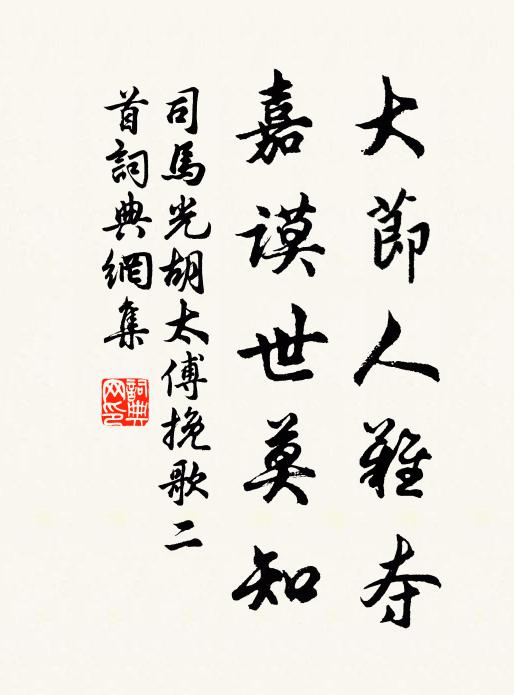 大節人難夺
嘉謨世莫知
司馬光胡太傅挽歌二
首詞典網集
詞典
网印